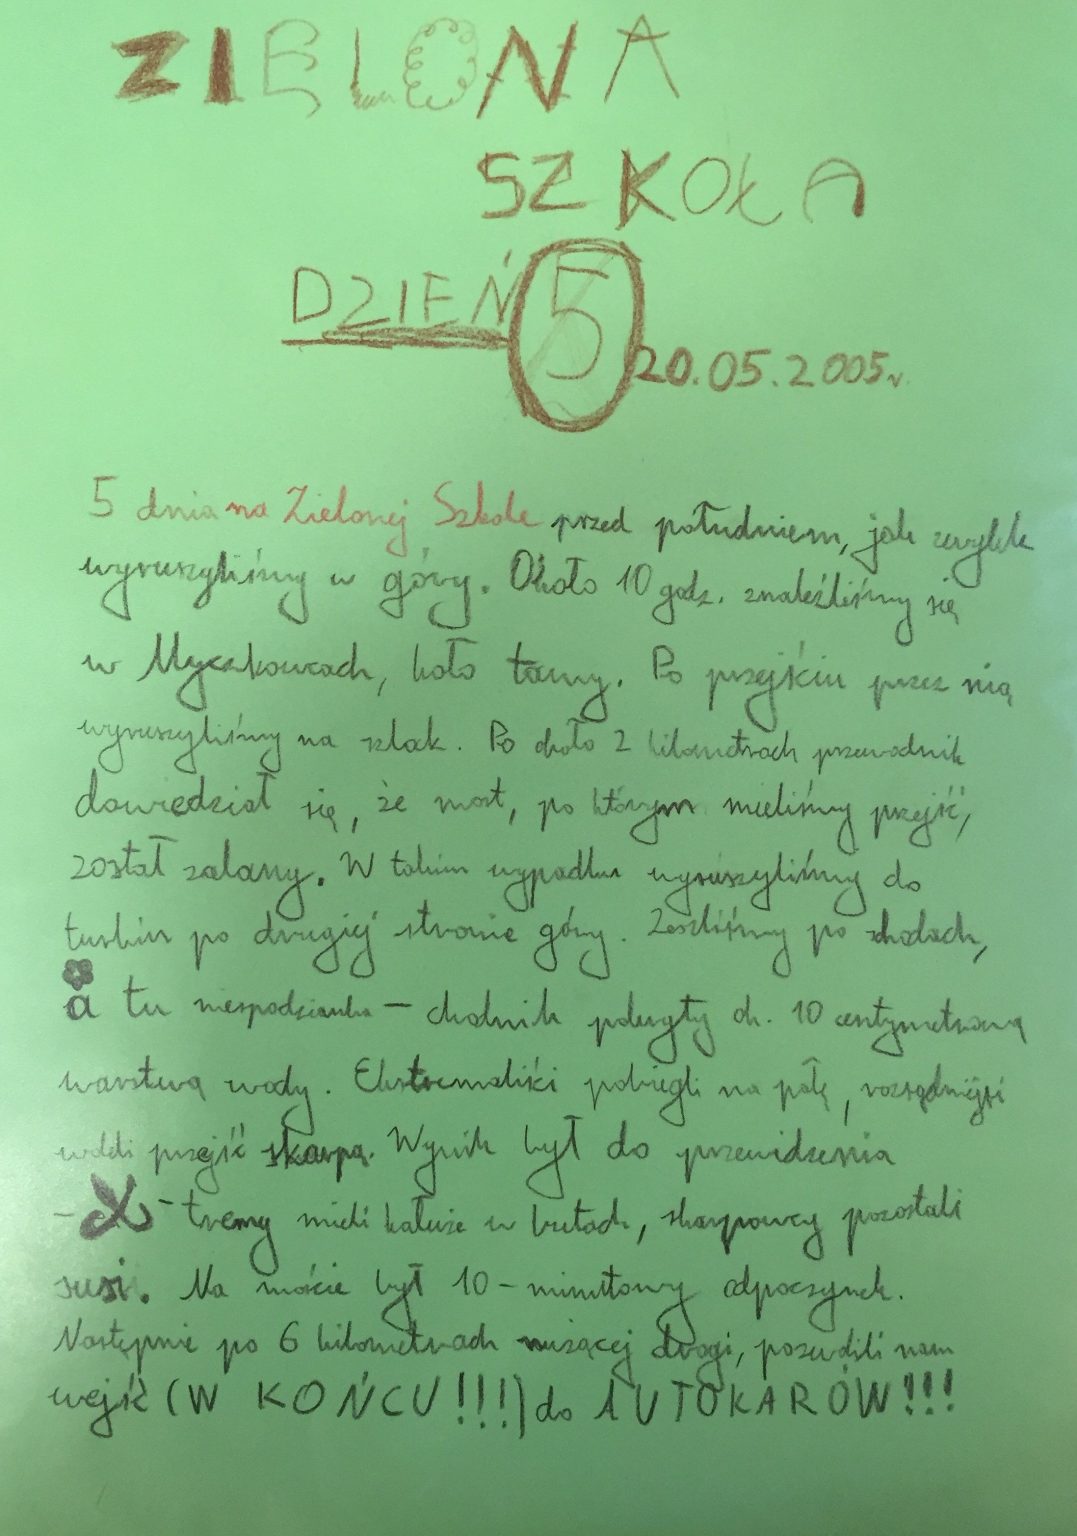 ZIELONA
SZKOŁA
DZIEŃ 5 20.05.2005r.
5 dnia na Zielonej Szkole przed południem, jak zwykle
wyruszyliśmy w góry. Około 10 godz. znaleźliśmy się
w Myczkowcach, koło tamy. Po przejściu przez nią
wyruszyliśmy na szlak. Po około 2 kilometrach przewodnik
dowiedział się, że most, po którym mieliśmy przejść,
został zalany. W takim wypadku wyruszyliśmy do
turbin po drugiej stronie góry. Zeszliśmy po schodach,
a tu niespodzianka – chodnik pokryty ok. 10 centymetrową
warstwą wody. Ekstremaliści pobiegli na pałę, rozsądniejsi
woleli przejść skarpą. Wynik był do przewidzenia
- X - tremy mieli kałuże w butach, skarpowcy pozostali
susi. Na moście był 10-minutowy odpoczynek.
Następnie po 6 kilometrach drogi, pozwolili nam
wejść (W KOŃCU!!!) do AUTOKARÓW!!!